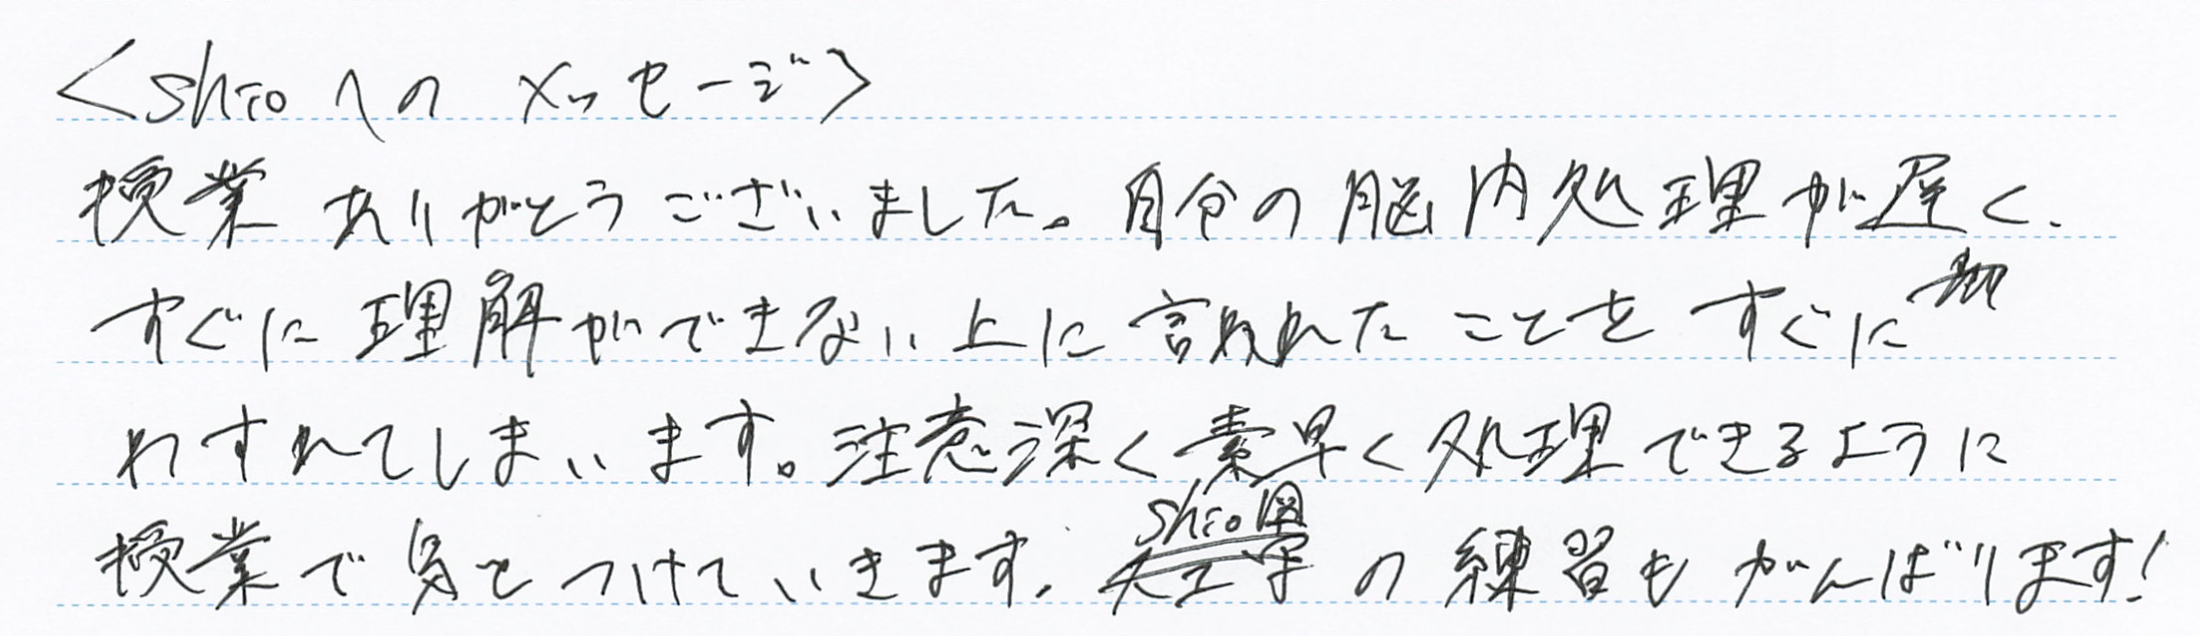 <shioへのメッセージ>
授業ありがとうございました。自分の脳内処理が遅く、
すぐに理解ができない上に言われたことをすぐに
わすれてしまいます。注意深く素早く処理できるように
授業で身をつけていきます。shioの練習もがんばります!